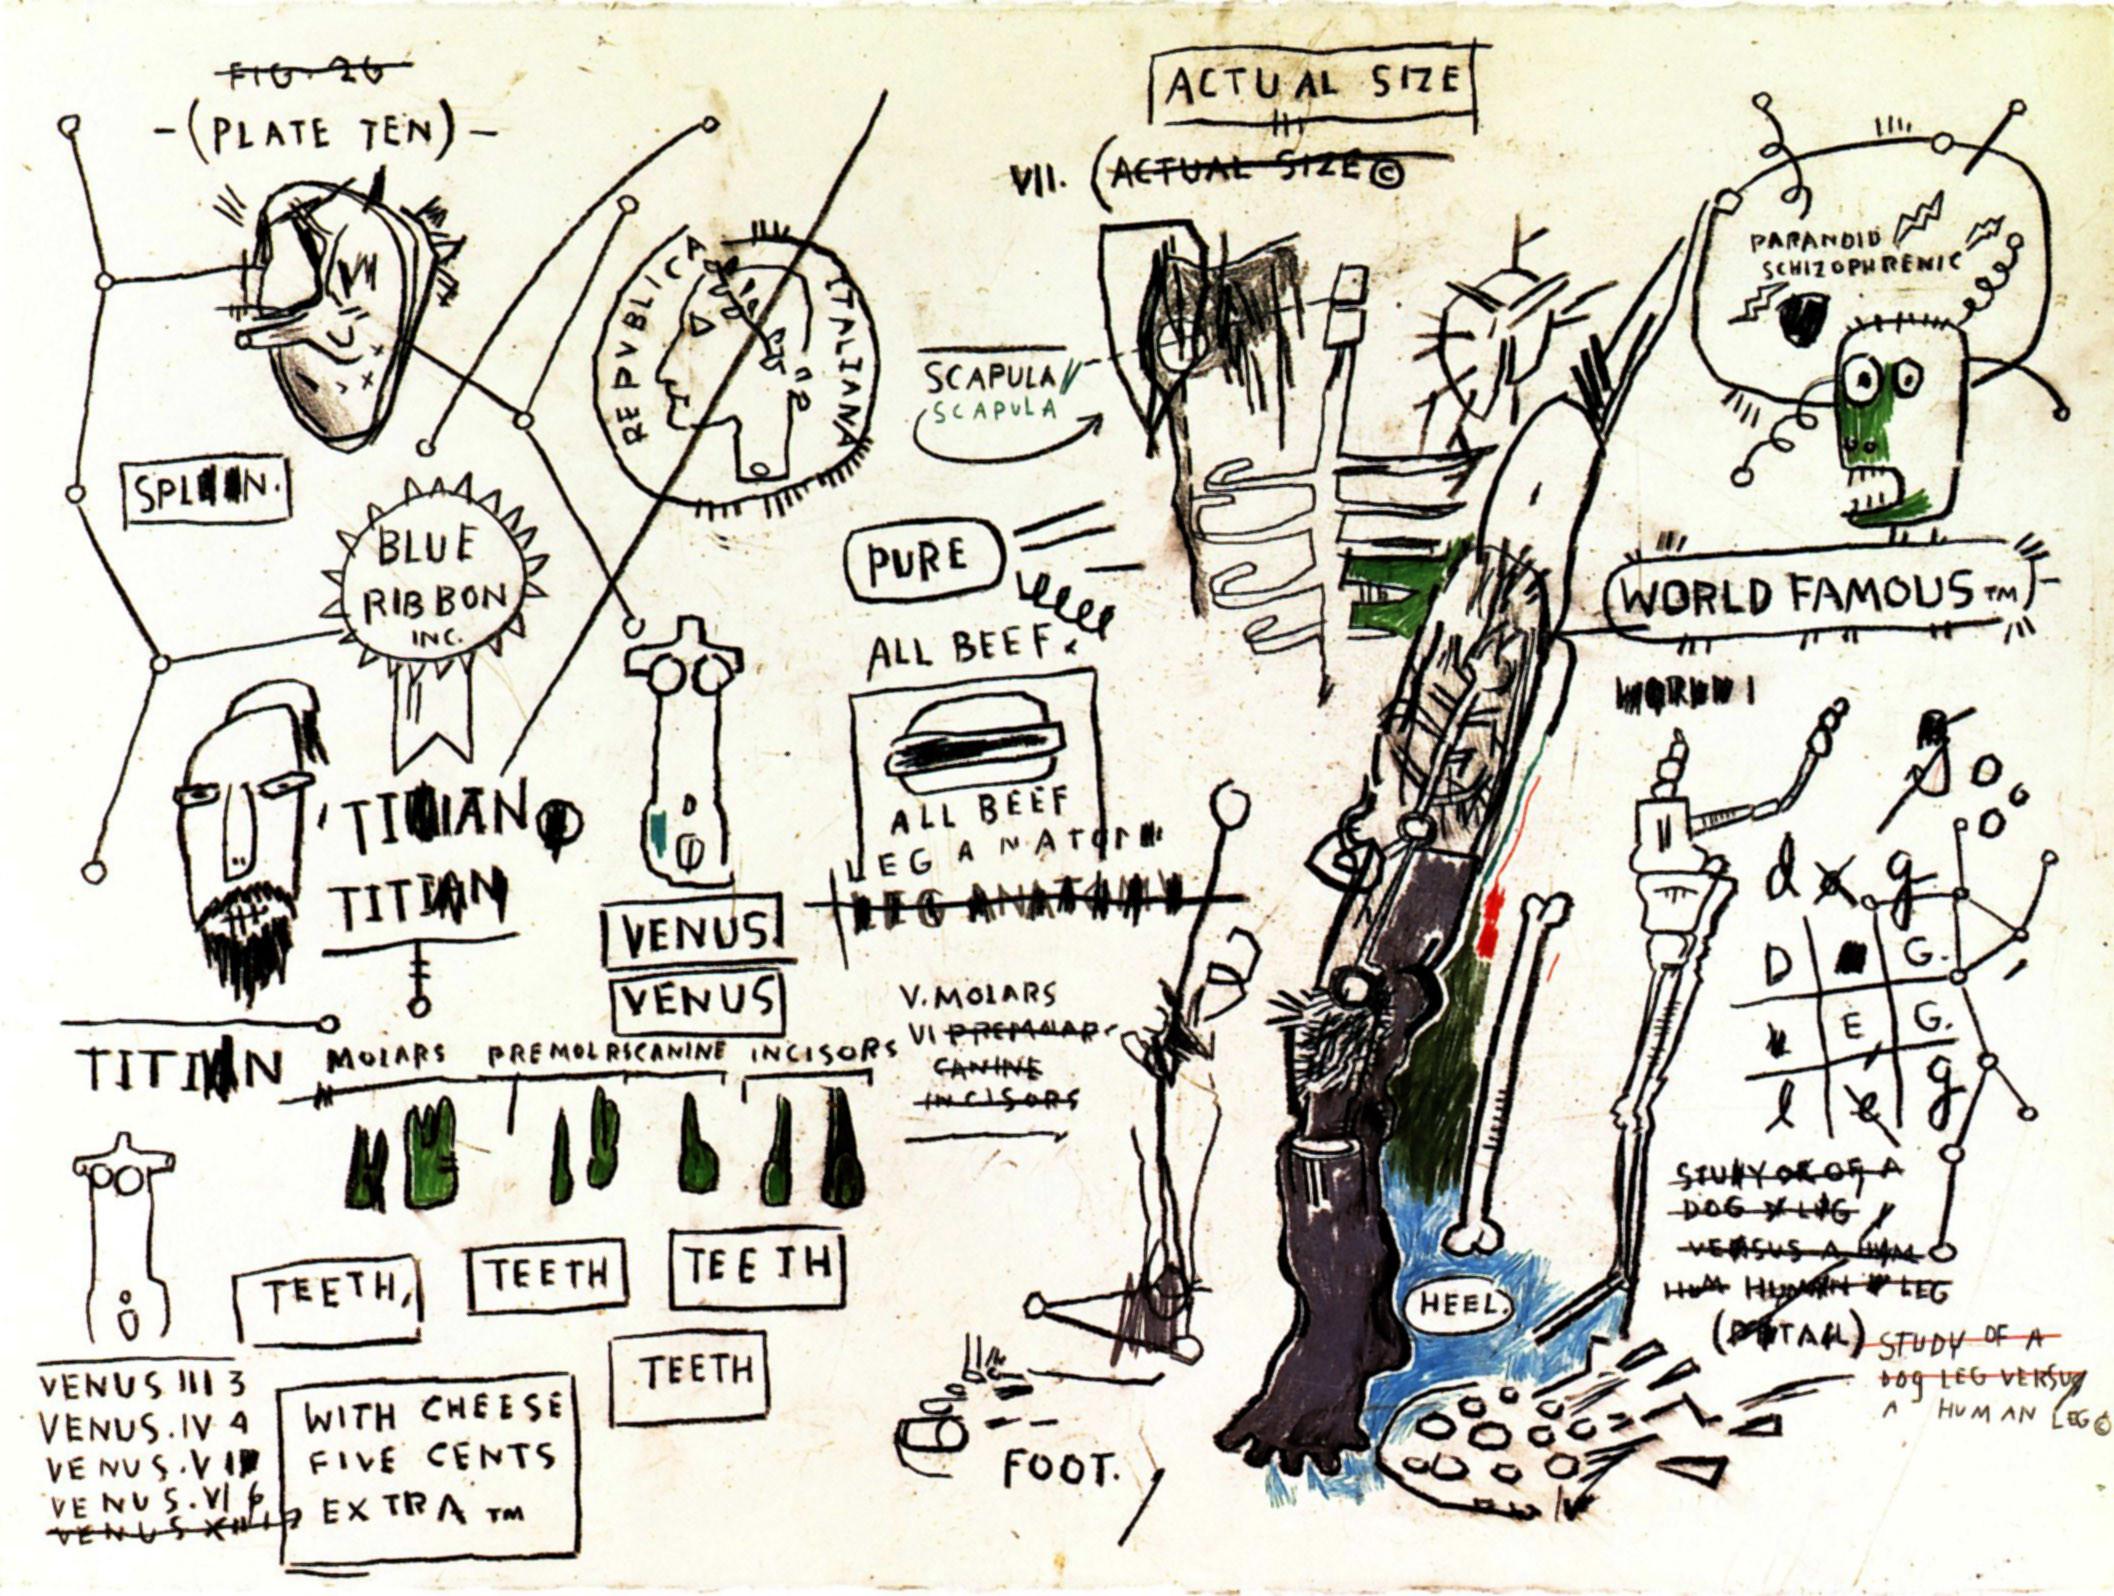 FIG. 26
-(PLATE TEN)-
SPLEEN.
BLUE
RIBBON
INC.
REPVBLICA ITALIANA
TITIAN
TITIAN
TITIAN
VENUS
VENUS
MOLARS PREMOLRSCANINE INCISORS
TEETH,
TEETH
TEETH
TEETH
VENUS III 3
VENUS.IV 4
VENUS.V
VENUS.VI 6
VENUS XIII
WITH CHEESE
FIVE CENTS
EXTRA TM
ACTUAL SIZE
VII. (ACTUAL SIZE ©
SCAPULA
SCAPULA
PURE
ALL BEEF.
ALL BEEF
LEG ANATOM
LEG ANATOMY
V. MOLARS
VI PREMOLAR
CANINE
INCISORS
FOOT.
HEEL.
PARANOID
SCHIZOPHRENIC
WORLD FAMOUS TM
WORLD
d o g
D G.
E G.
l e g
STUDY OF OF A
DOG LEG
VERSUS A HUM
HUM HUMAN LEG
(DETAIL)
STUDY OF A
DOG LEG VERSUS
A HUMAN LEG ©